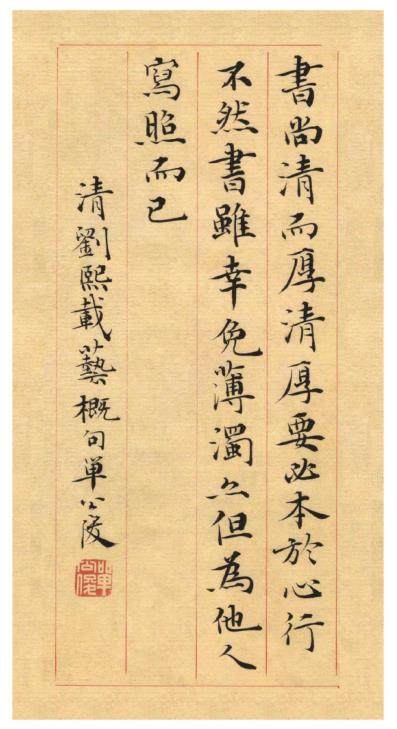 書尚清而厚清厚要必本於心行
不然書雖幸免薄濁亦但為他人
寫照而已
清劉熙載藝概句單公